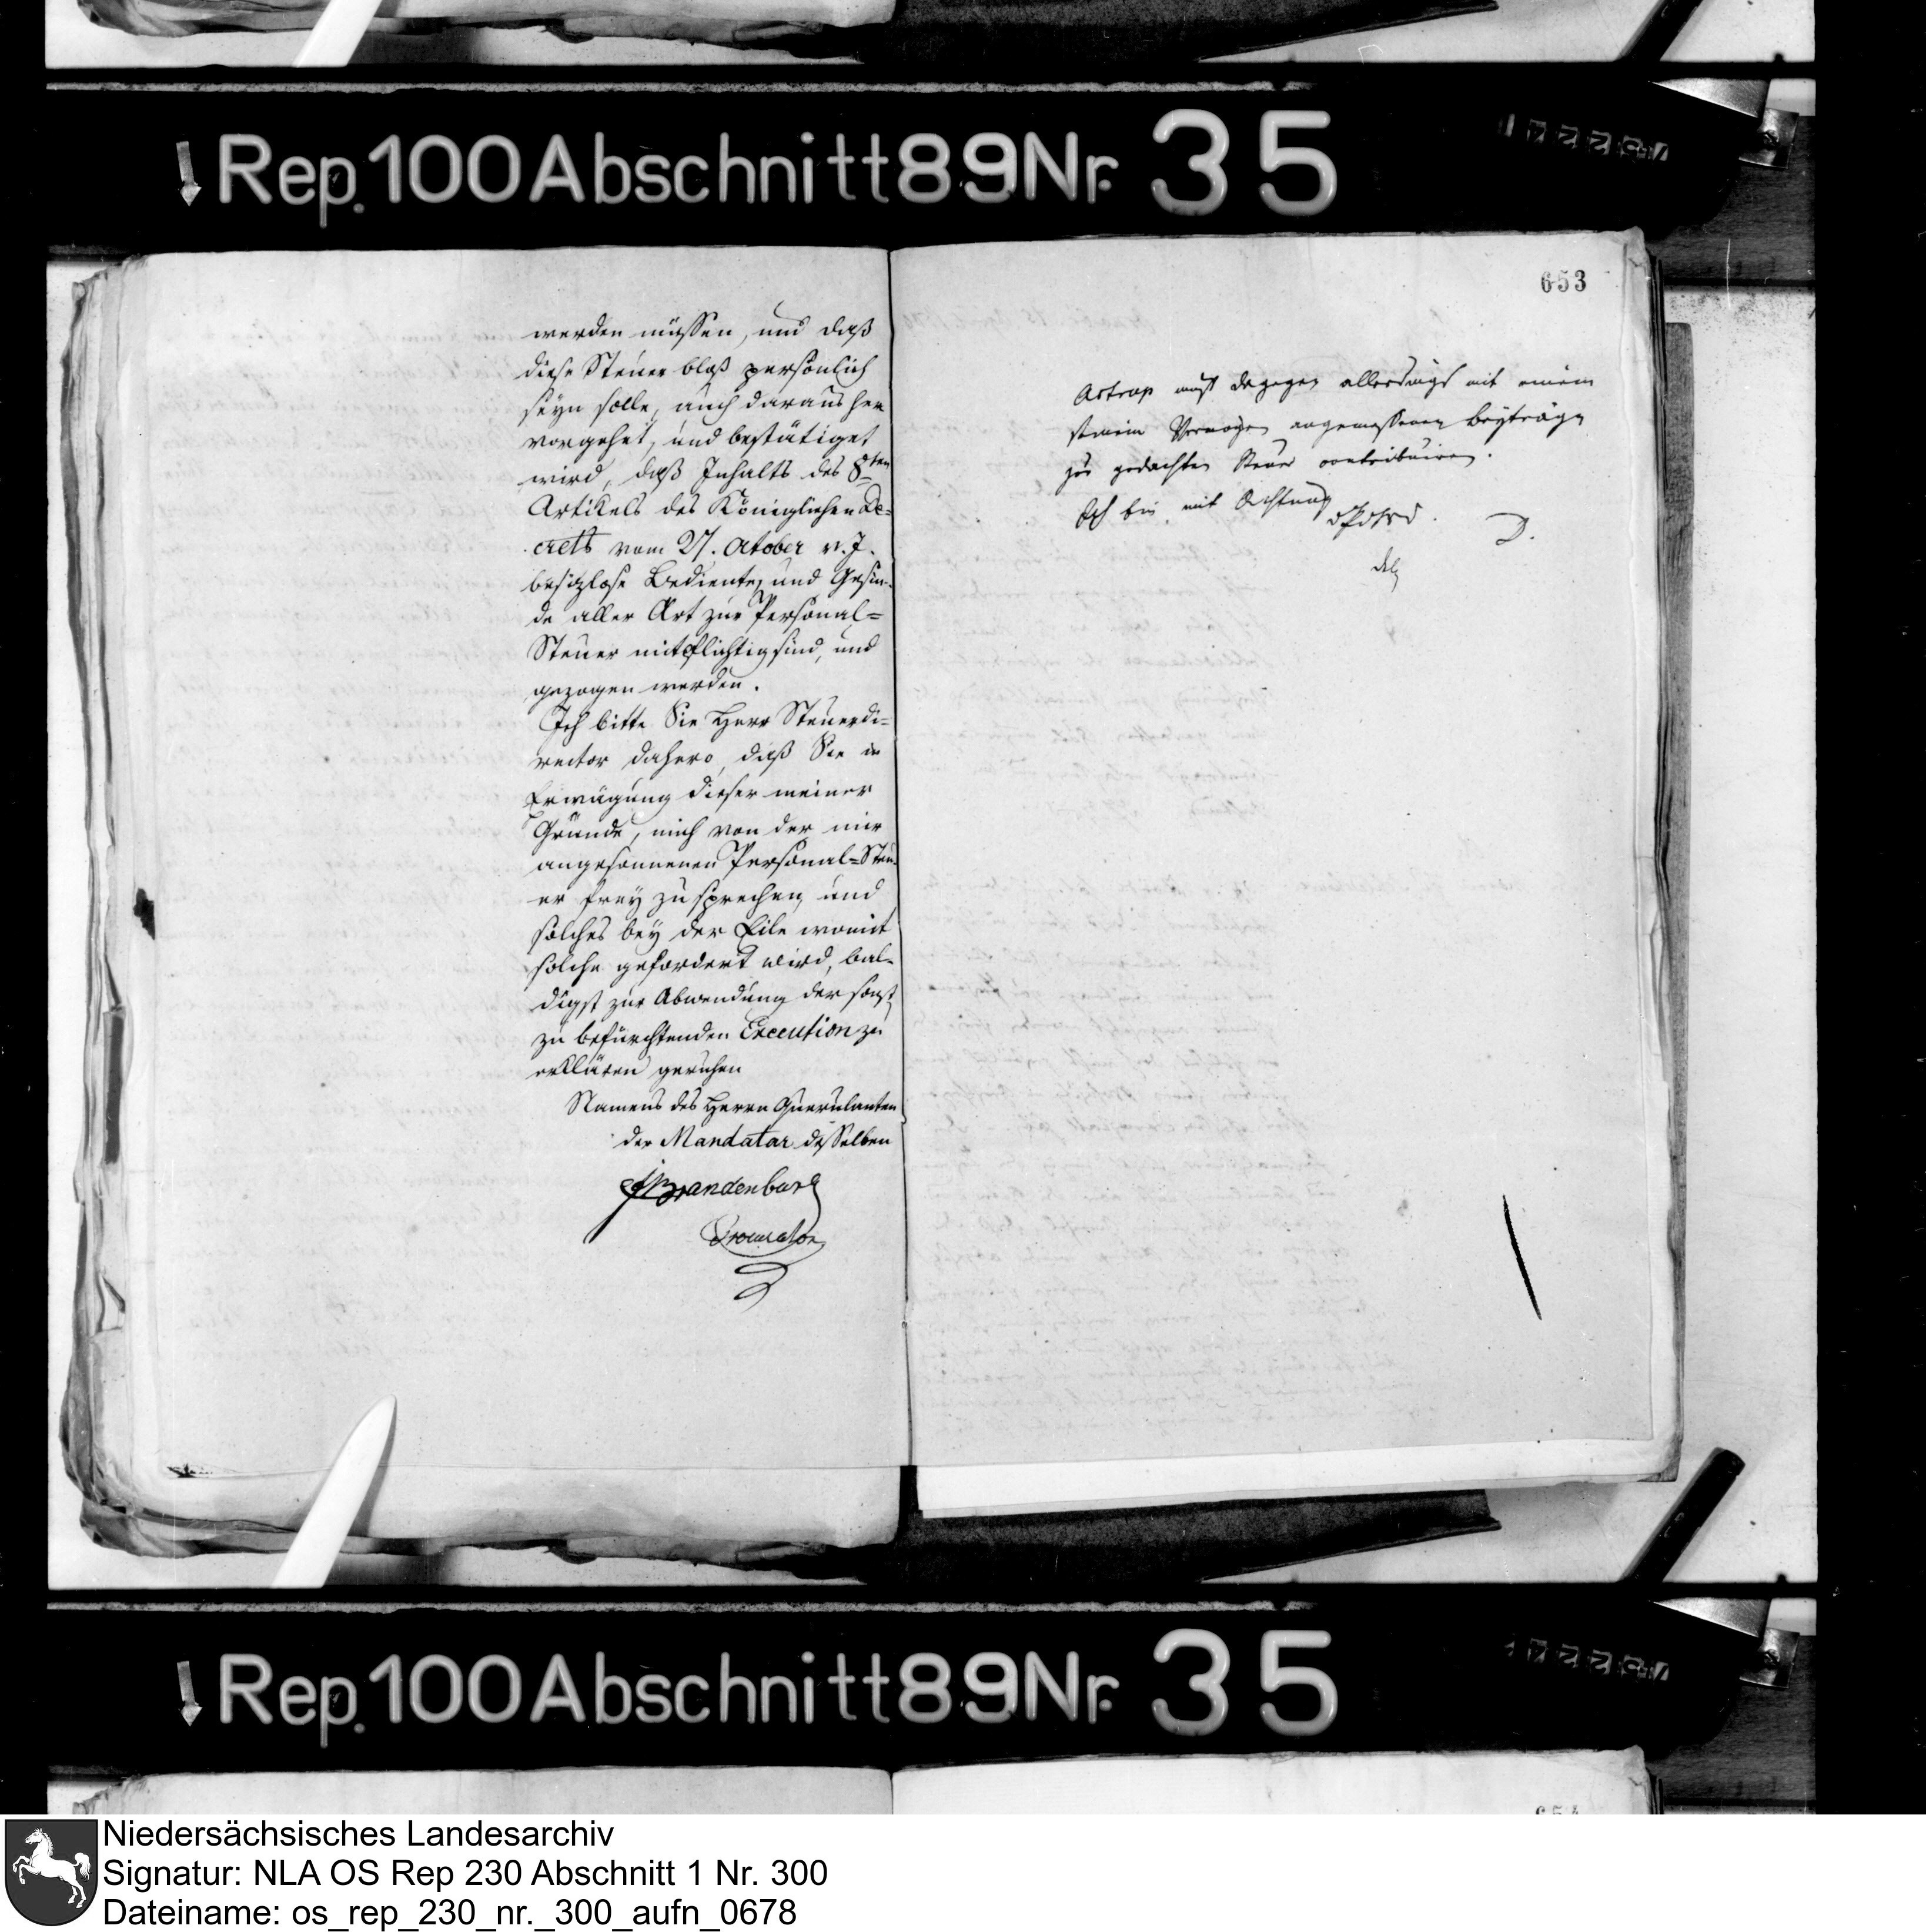 Rep. 100 Abschnitt 89 Nr. 35
werden müssen, und daß
diese Steuer bloß persönlich
seyn solle, auch daraus her
vorgehet, und bestätiget
wird, daß Inhalts des 8ten
Artikels des Königlichen De-
crets vom 27. October v. J.
besizlose Bediente, und Gesin-
de aller Art zur Personal-
Steuer mitpflichtig sind, und
gezogen werden.
Ich bitte Sie Herr Steuerdi-
rector dahero, daß Sie in
Erwägung dieser meiner
Gründe, mich von der mir
angesonnenen Personal-Steu-
er frey zu sprechen, und
solches bey der Eile womit
solche gefordert wird, bal-
digst zur Abwendung der sonst
zu befürchtenden Execution zu
erklären geruhen
Namens des Herrn Querulanten
der Mandatar desselben
Brandenburg
Procurator
653
Astrup muß dagegen allerdings mit einem
seinem Vermögen angemessenen Beytrage
zur gedachten Steuer contribuiren.
Ich bin mit Achtung
D.
Rep. 100 Abschnitt 89 Nr. 35
Niedersächsisches Landesarchiv
Signatur: NLA OS Rep 230 Abschnitt 1 Nr. 300
Dateiname: os_rep_230_nr._300_aufn_0678